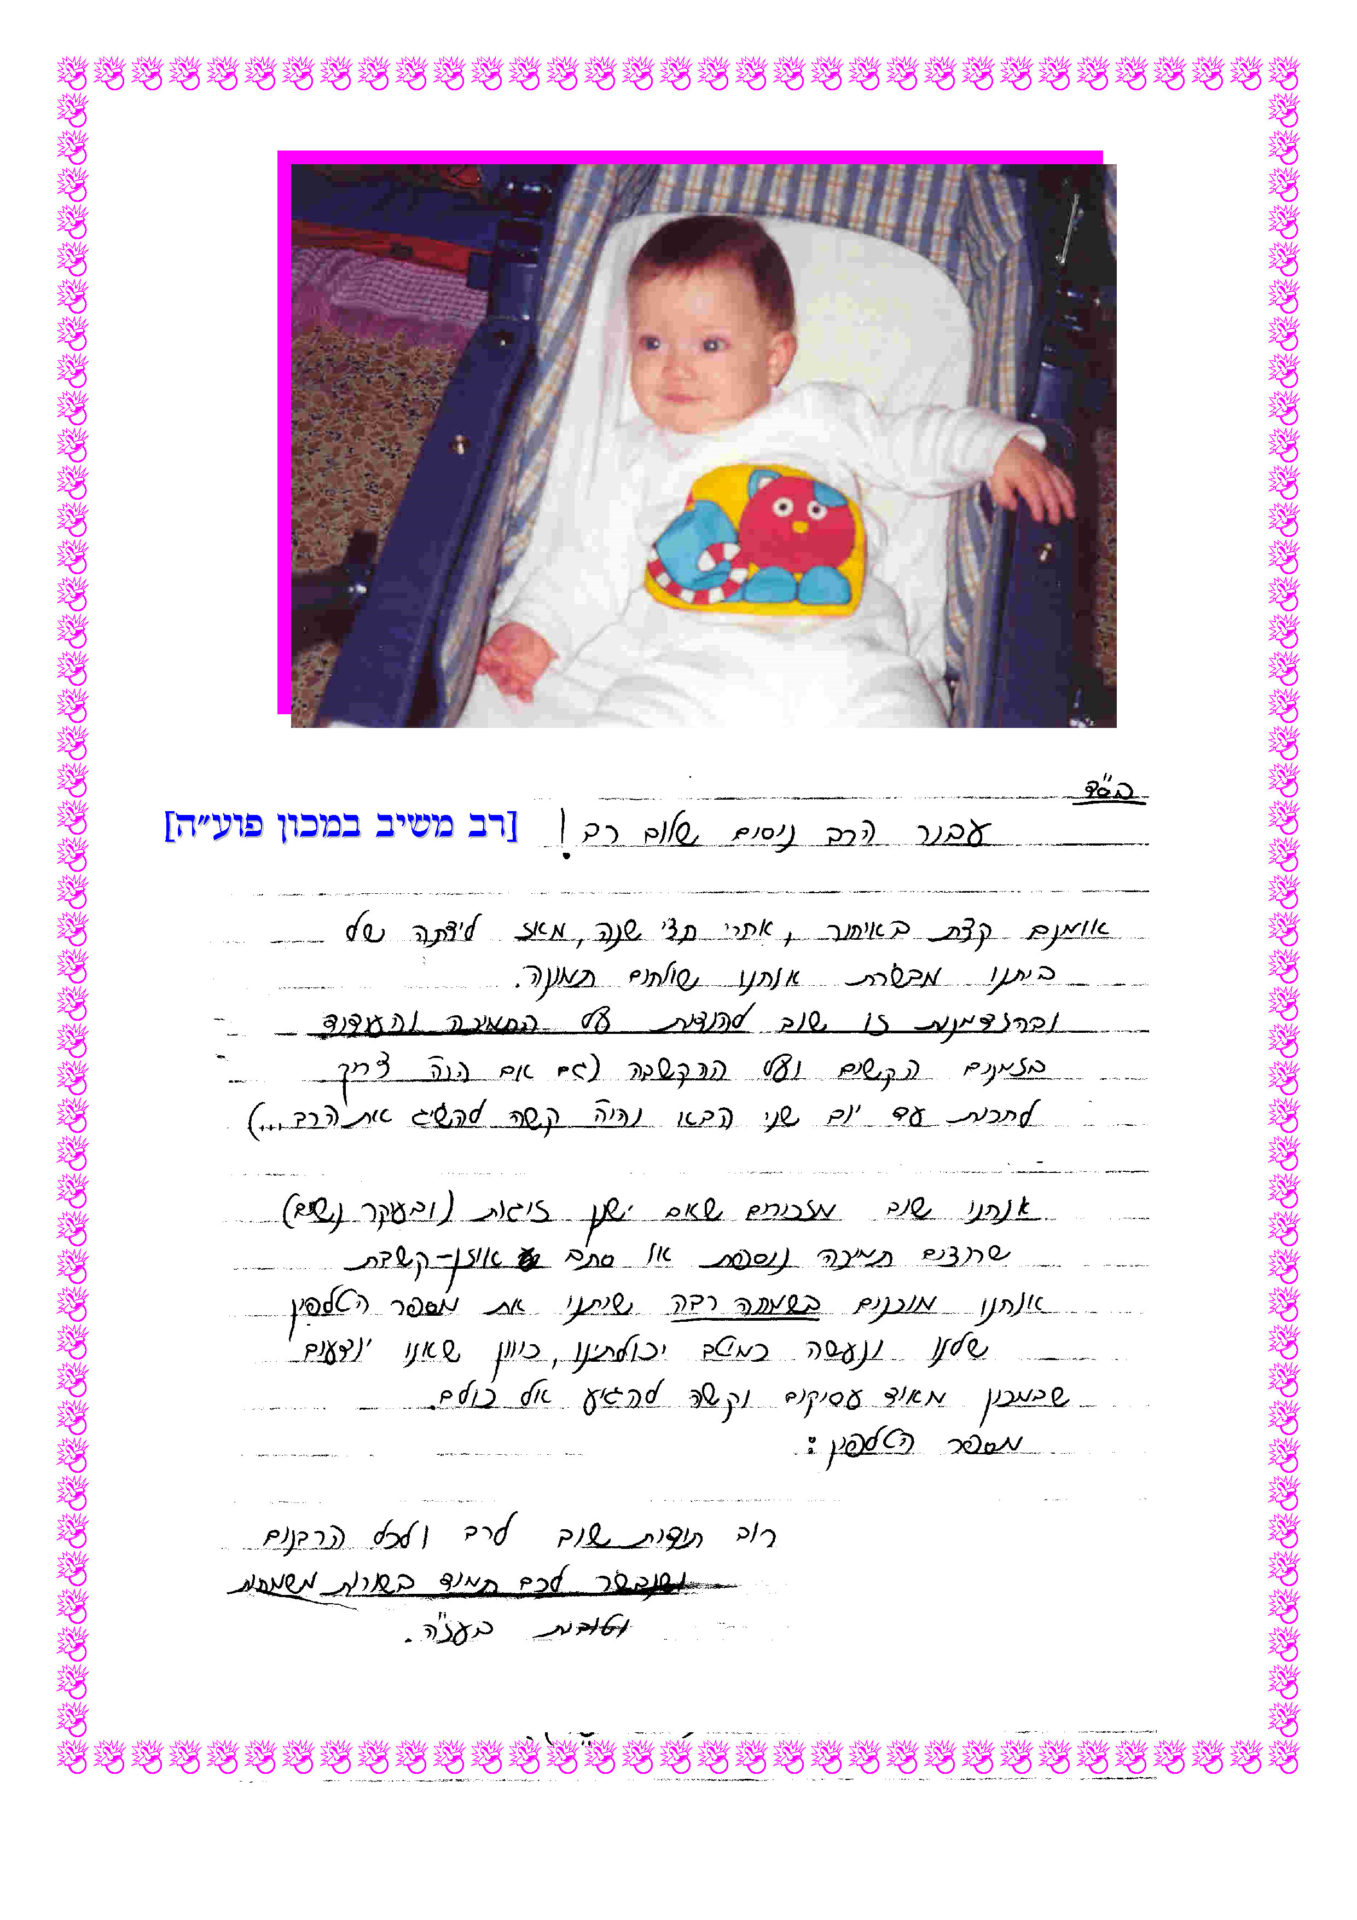 בס"ד
עבור הרב ניסים שלום רב! [רב משיב במכון פוע״ה]
אומנם קצת באיחור, אחרי חצי שנה, מאז לידתה של
ביתנו מבשרת אנחנו שולחים תמונה.
ובהזדמנות זו שוב להודות על התמיכה והעידוד
בזמנים הקשים ועל ההקשבה (גם אם היה צריך
לחכות עד יום שני הבא והיה קשה להשיג את הרב...)
אנחנו שוב מזכירים שאם ישנן זוגות (ובעקר נשים)
שרוצים תמיכה נוספת או סתם אוזן-קשבת
אנחנו מוכנים בשמחה רבה שיתנו את מספר הטלפון
שלנו ונעשה כמיטב יכולתינו, כיוון שאנו יודעים
שבמכון מאוד עסיקים וקשה להגיע אל כולם.
מספר הטלפון:
רוב תודות שוב לרב ולכל הרבנים
ושנבשר לכם תמיד בשורות משמחות
וטובות בעז"ה.